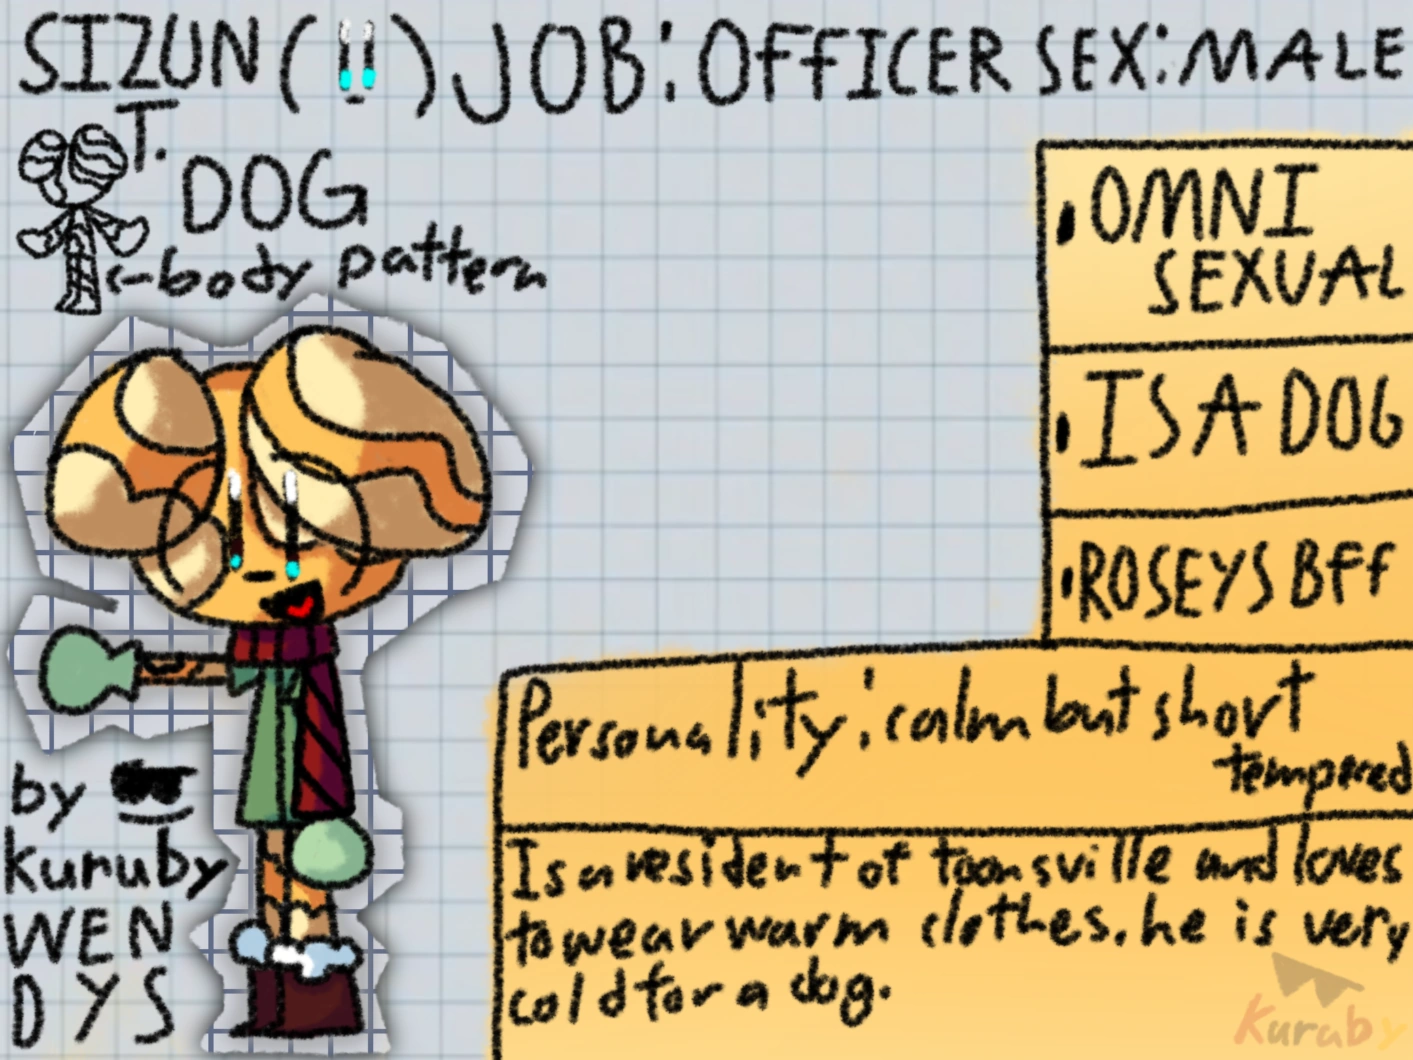 SIZUN ( ) JOB: OFFICER SEX: MALE
T. DOG
<-body pattern
• OMNI
SEXUAL
• IS A DOG
• ROSEYS BFF
Personality: calm but short
tempered
Is a resident of toonsville and loves
to wear warm clothes. he is very
cold for a dog.
by
Kuruby
WEN
DYS
Kuruby